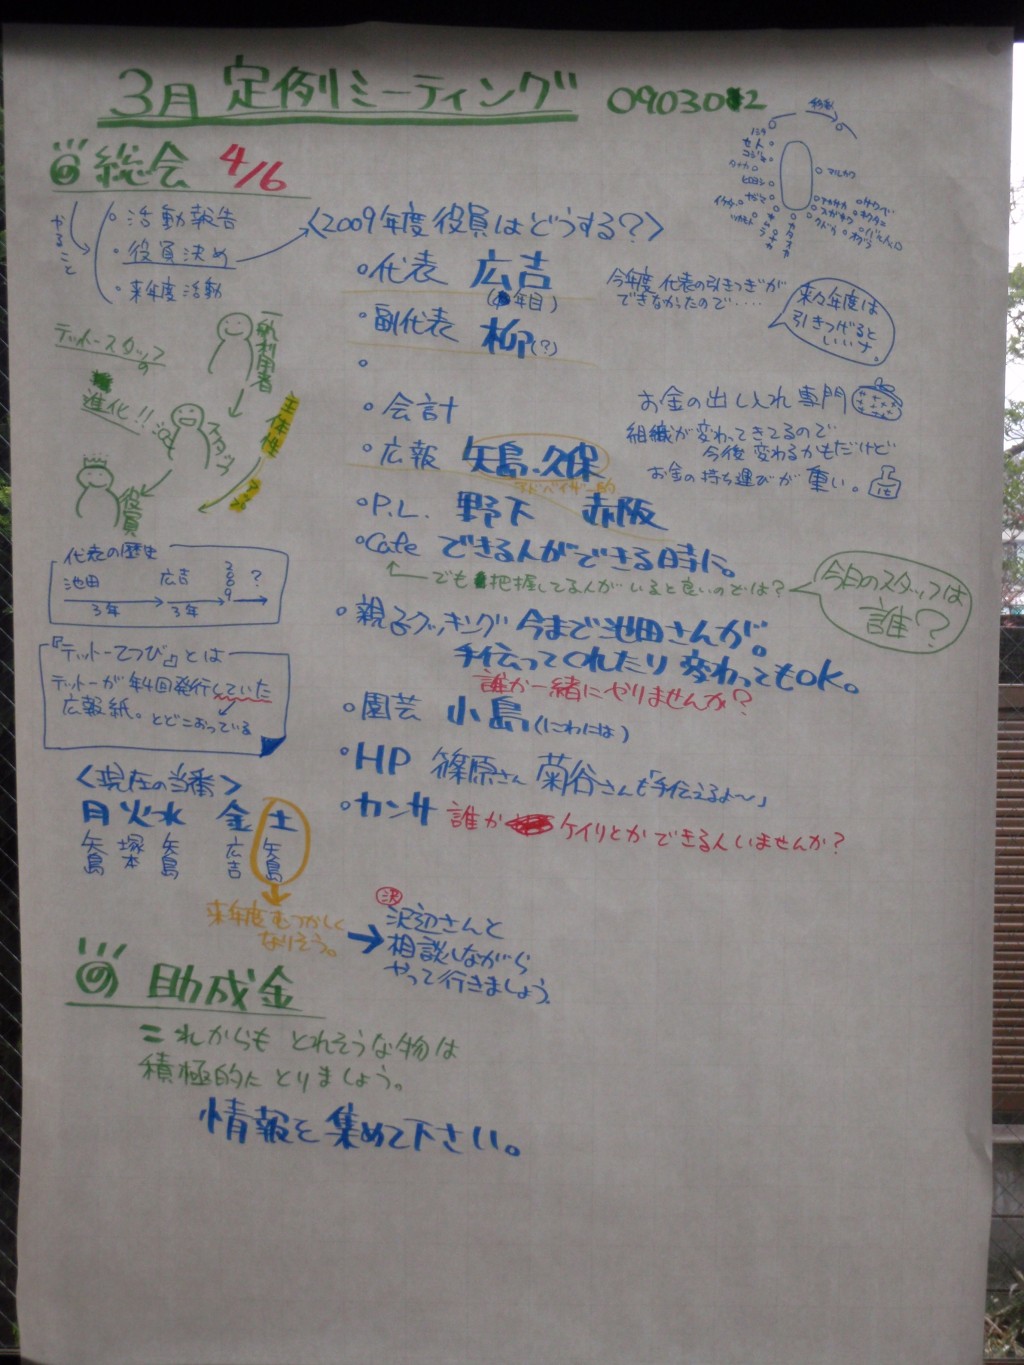 3月 定例ミーティング 090302
総会 4/6
やること
・活動報告
・役員決め
・来年度活動
〈2009年度役員はどうする?〉
・代表 広吉
年目)
・副代表 柳(?)
今年度 代表の引きつぎが
できなかったので・・・・
来々年度は
引きつげると
いいナ。
・会計
お金の出し入れ専門
組織が変わってきてるので
今後 変わるかもだけど
お金の持ち運びが 重い。
・広報 矢島・久保
アドバイザー的
・P.L. 野下 赤阪
・Cafe できる人ができる時に。
でも把握してる人がいると良いのでは?
今日のスタッフは
誰?
・親子クッキング 今まで池田さんが。
手伝ってくれたり 変わってもOK。
誰か一緒にやりませんか?
・園芸 小島(にわには)
・HP 篠原さん 菊谷さんも「手伝えるよ〜」
・カンサ 誰か ケイリとかできる人いませんか?
テットースタッフの
進化!!
一般利用者
スタッフ
役員
主体性
代表の歴史
池田 広吉 2009 ?
3年 3年
『テットーてつび』とは
テットーが年4回発行していた
広報紙。とどこおっている
〈現在の当番〉
月 火 水 金 土
矢島 塚本 矢島 広吉 矢島
来年度むつかしく
なりそう。
沢
沢辺さんと
相談しながら
やって行きましょう。
助成金
これからも とれそうな物は
積極的に とりましょう。
情報を集めて下さい。
マルカワ
ヒロヨシ